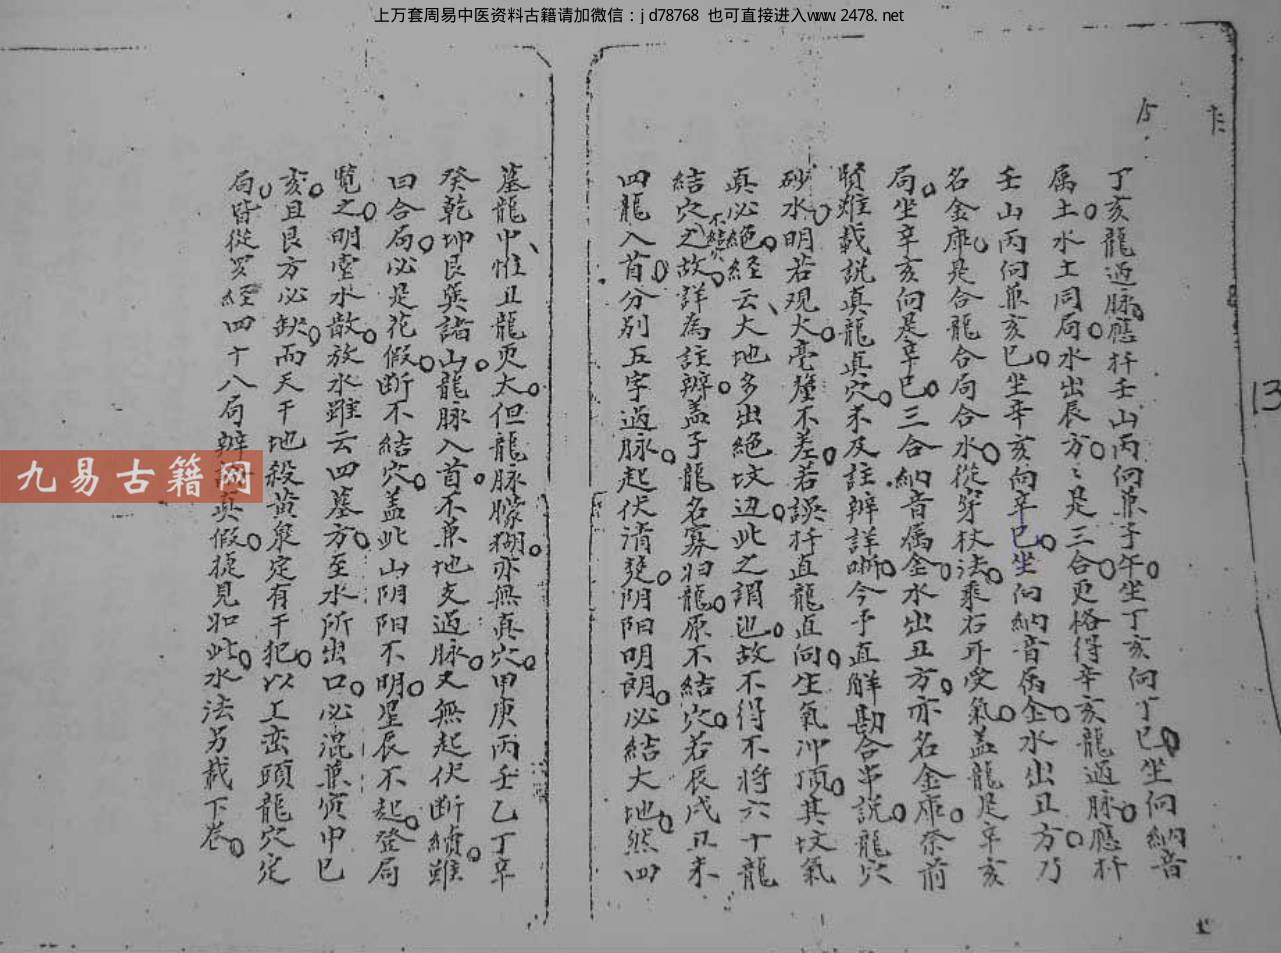 上万套周易中医资料古籍请加微信：jd78768 也可直接进入www.2478.net
13
丁亥龍過脉應扦壬山丙向兼子午坐丁亥向丁巳坐向納音
属土水土同局水出辰方〻是三合更格得辛亥龍過脉應扦
壬山丙向兼亥巳坐辛亥向辛巳坐向納音属金水出丑方乃
名金庫是合龍合局合水從穿杖法乘右耳受氣盖龍是辛亥
局坐辛亥向是辛巳三合納音属金水出丑方亦名金庫奈前
賢雖載説真龍真穴未及註辨詳晰今予直解勘合串説龍穴
砂水明若观火毫釐不差若誤扦直龍直向生氣冲頂其坟氣
真必絕經云大地多出絕坟边此之謂也故不得不將六十龍
結穴不結穴之故詳為註辨盖子龍名寡归龍原不結穴若辰戌丑未
四龍入首分別五字過脉起伏清楚阴阳明朗必結大地然四
墓龍中惟丑龍更太但龍脉朦糊亦無真穴甲庚丙壬乙丁辛
癸乾坤艮巽諸山龍脉入首不兼地支過脉又無起伏断續雖
曰合局必是花假断不結穴盖此山阴阳不明星辰不起登局
覧之明堂水散放水雖云四墓方至水所出口必混兼寅申巳
亥且艮方必缺而天干地殺黄泉定有干犯以工巒頭龍穴定
局皆從罗経四十八局辨 真假捉見如此水法另載下卷
九易古籍网